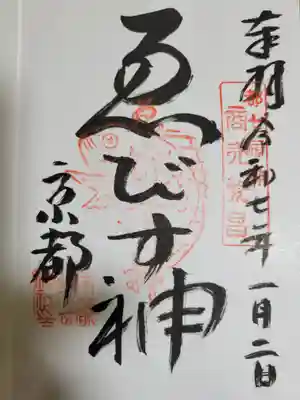 奉拝 令和七年一月二日
商売繁昌
ゑびす神
京都